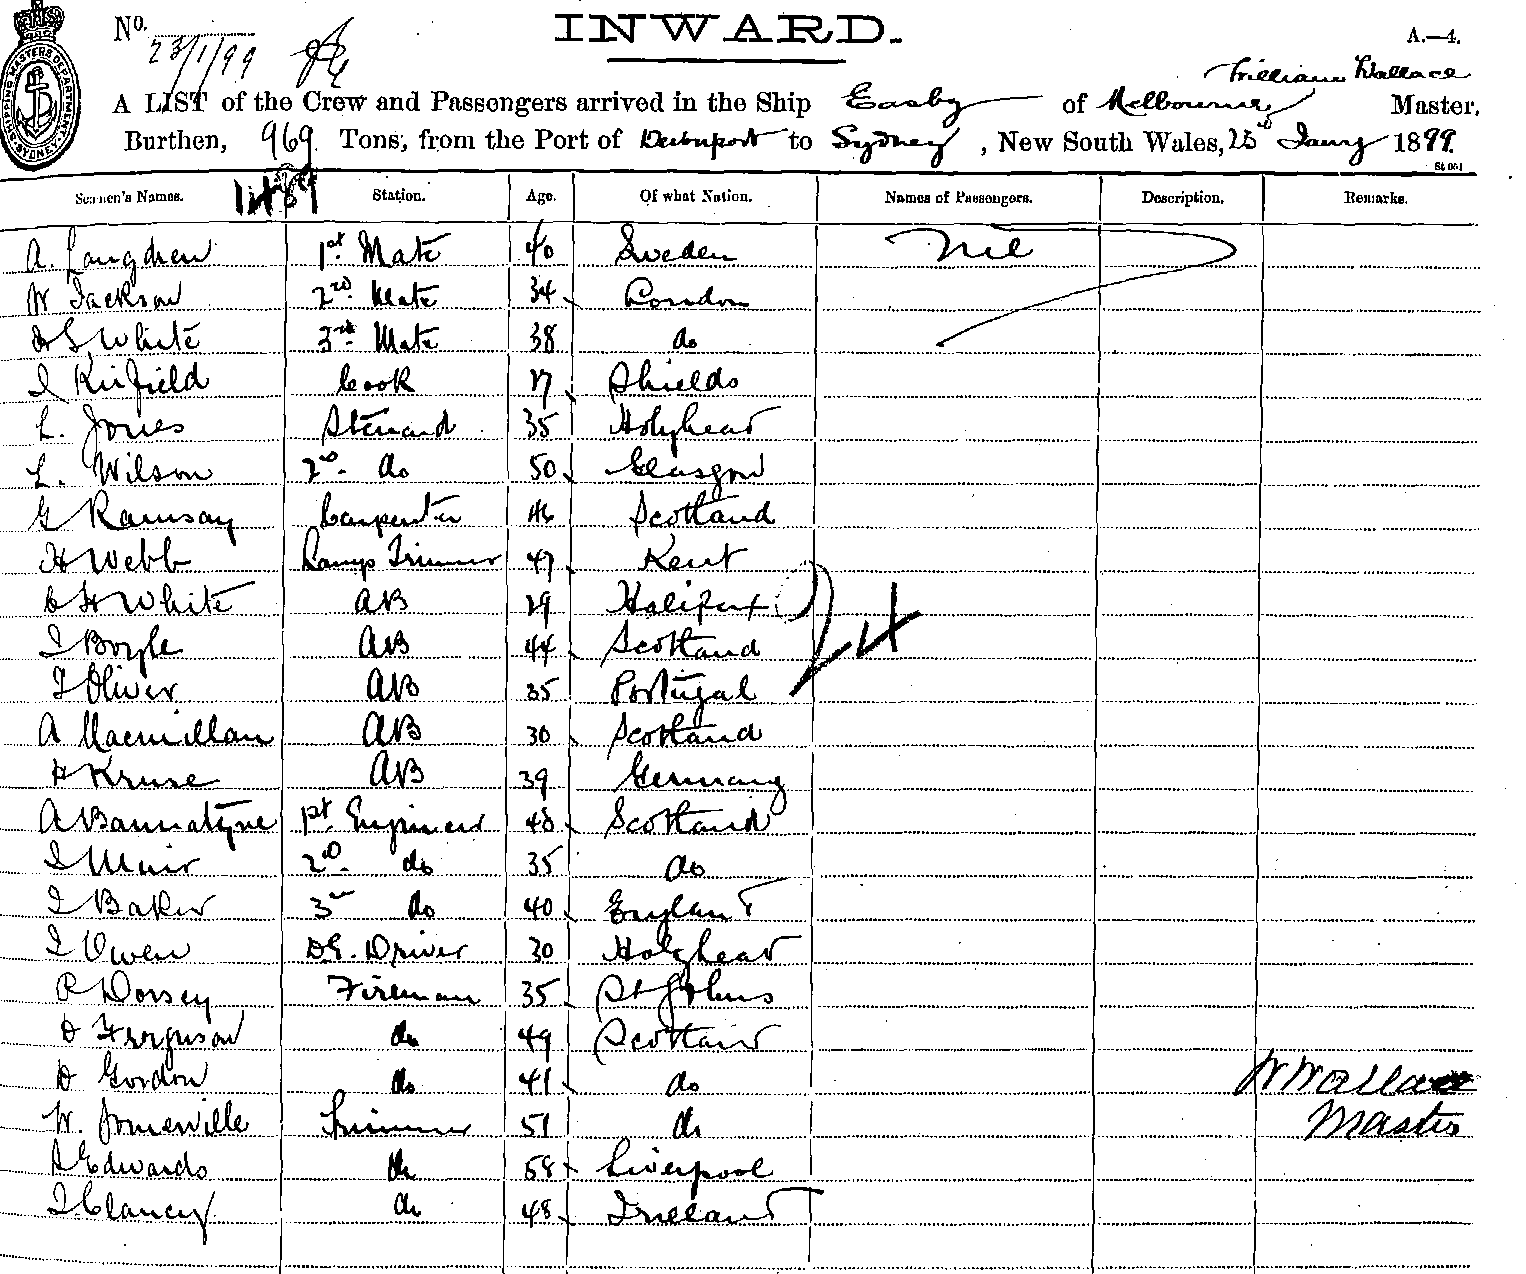 No. 23/1/99
INWARD.
A.—4.
SHIPPING MASTERS DEPARTMENT SYDNEY
William Wallace
A LIST of the Crew and Passengers arrived in the Ship Easby of Melbourne Master,
Burthen, 969 Tons, from the Port of Devonport to Sydney, New South Wales, 25th Jany 1899
Seamen's Names. Station. Age. Of what Nation. Names of Passengers. Description. Remarks.
A. Langdren 1st Mate 40 Sweden Nil
W Jackson 2nd Mate 34 London
White 3rd Mate 38 do
Kirfield Cook 27 Shields
L. Jones Steward 35 Holyhead
L. Wilson 2nd do 50 Glasgow
G Ramsay Carpenter 46 Scotland
H Webb Lamp Trimmer 47 Kent
C H White AB 29 Halifax
J Boyle AB 44 Scotland 24
J Oliver AB 35 Portugal
A Macmillan AB 30 Scotland
Kruse AB 39 Germany
A Bannatyne 1st Engineer 48 Scotland
J Muir 2nd do 35 do
J Baker 3rd do 40 England
J Owen D.E. Driver 30 Holyhead
P Dorsey Fireman 35 St Johns
D Ferguson do 49 Scotland
D Gordon do 41 do W Wallace
W. Somerville Trimmer 51 do Master
Edwards do 58 Liverpool
J Clancy do 48 Ireland